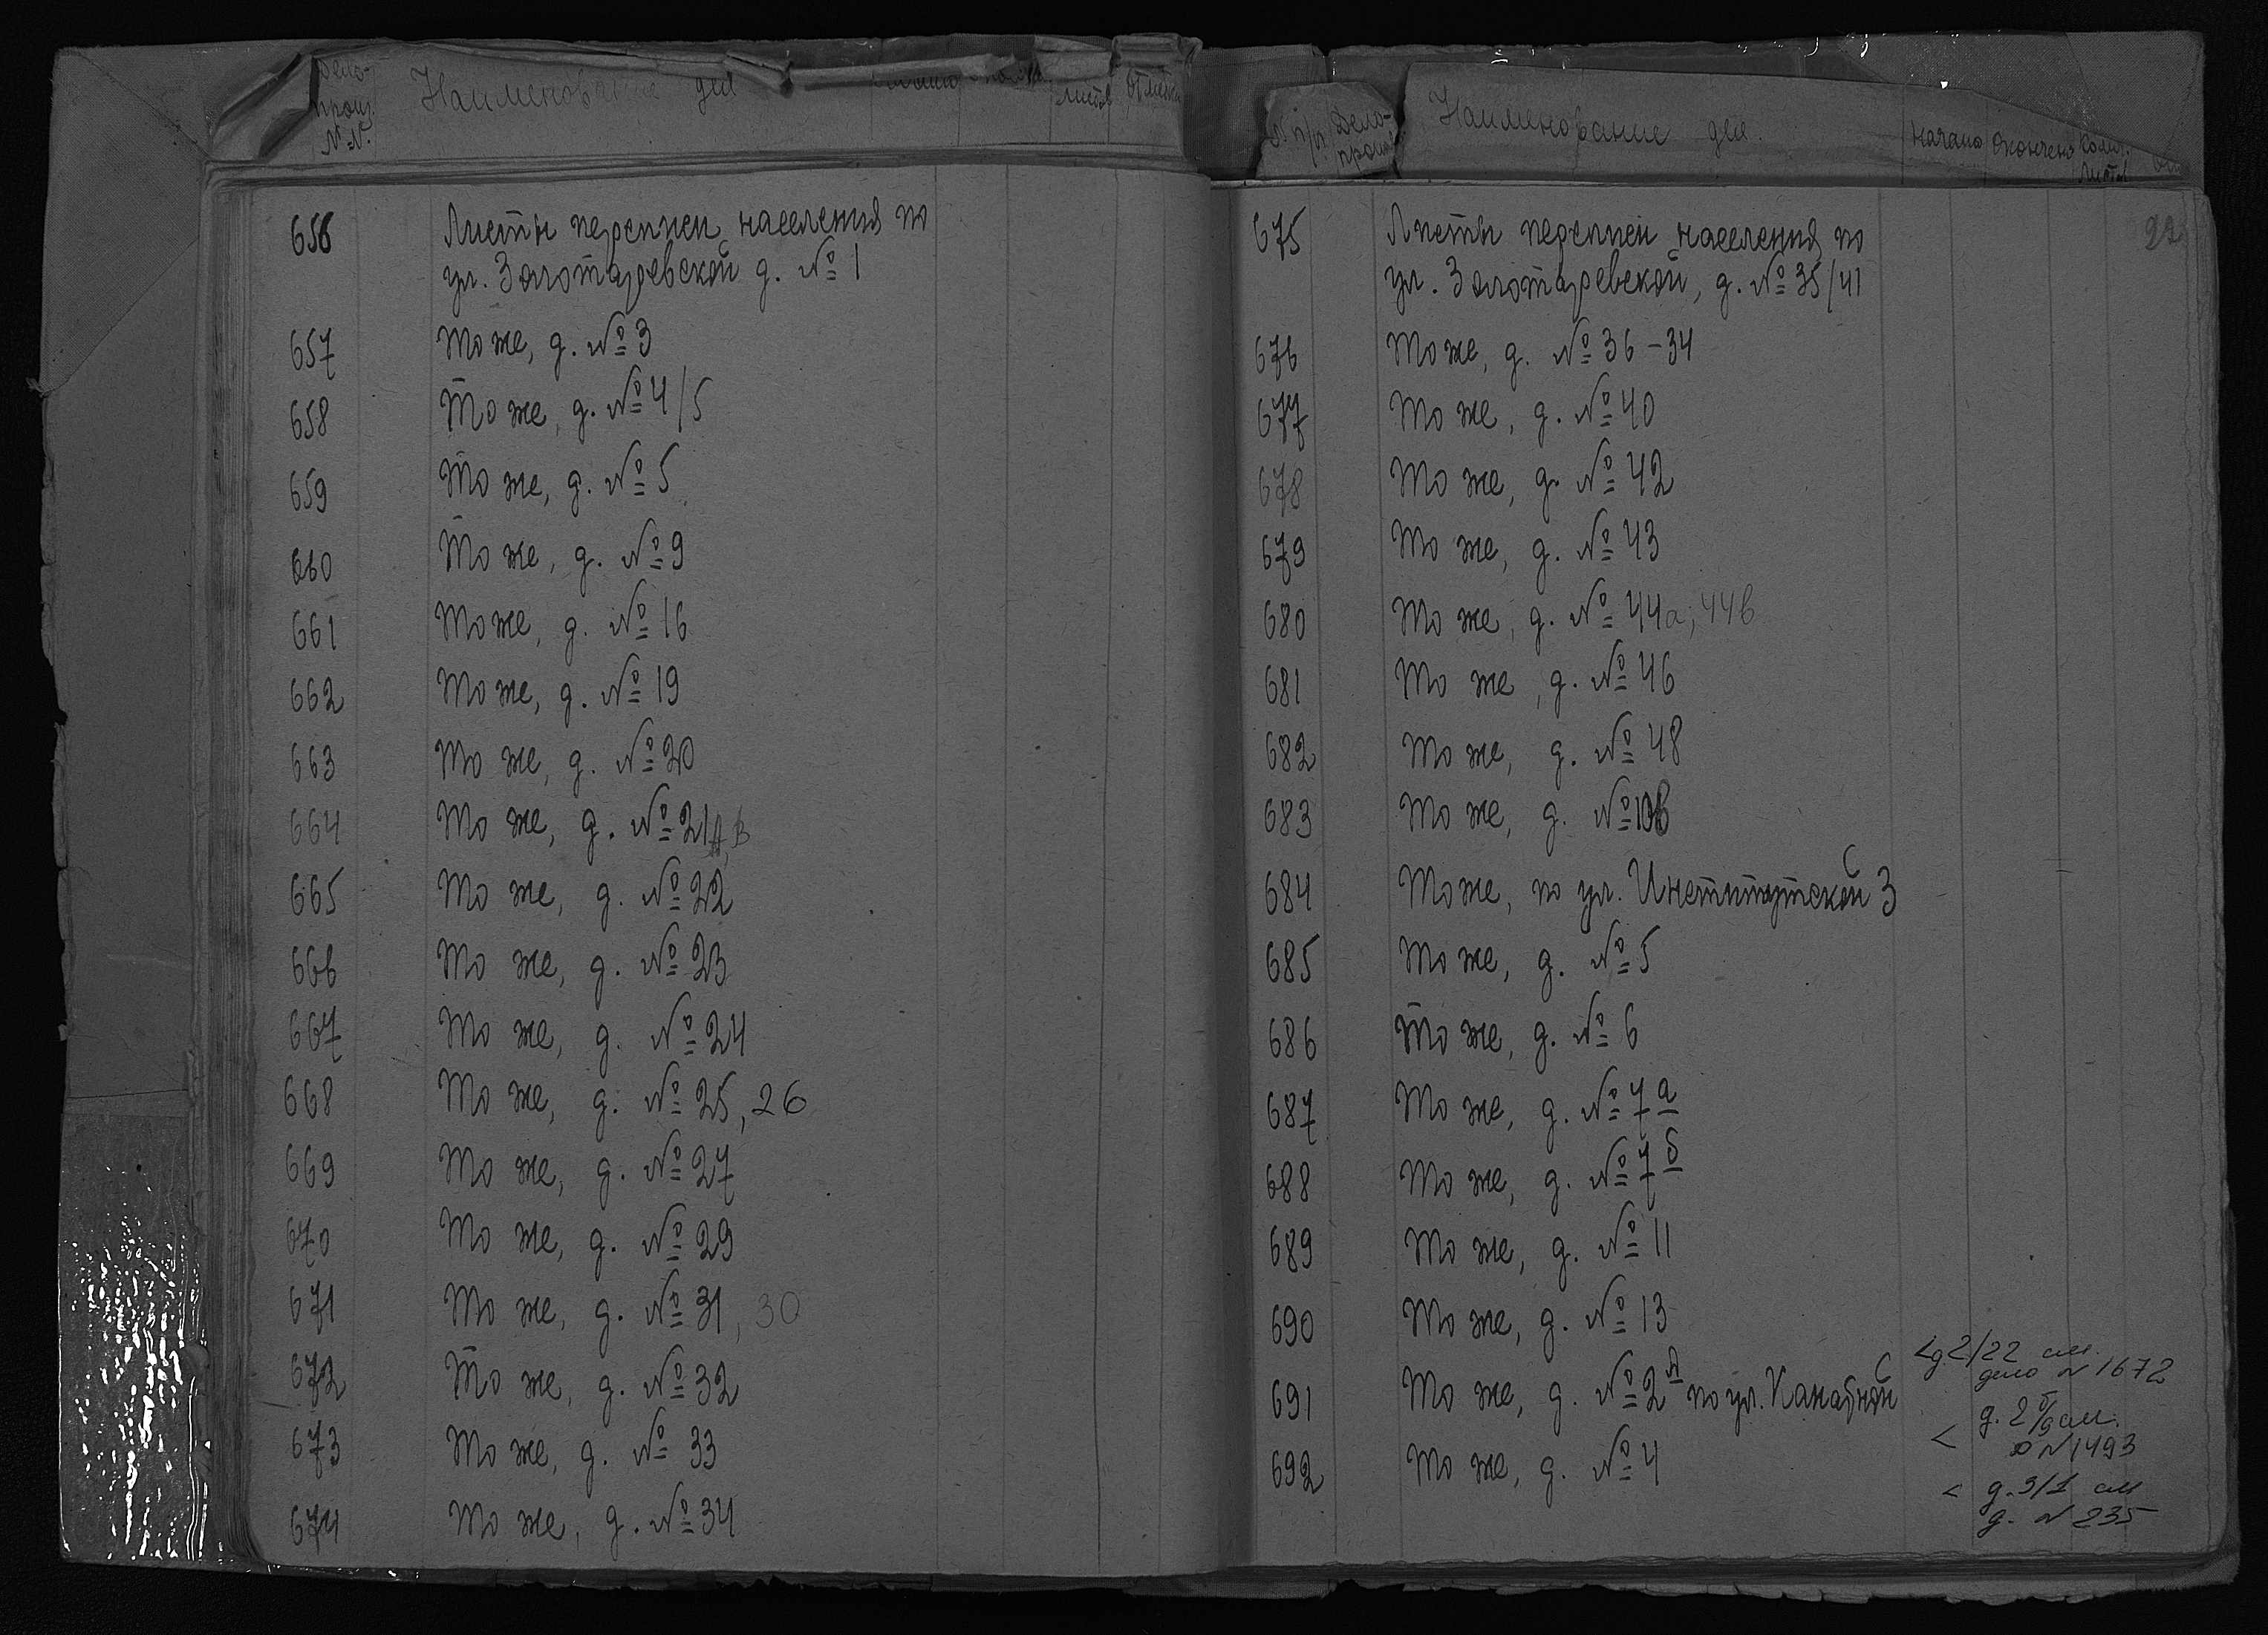 Дело-
произ.
№№.
Наименование дел
листов
отметки
656 Листы переписи населения по
ул. Золотаревской д. № 1
657 То же, д. № 3
658 То же, д. № 4/5
659 То же, д. № 5
660 То же, д. № 9
661 То же, д. № 16
662 То же, д. № 19
663 То же, д. № 20
664 То же, д. № 21А, В
665 То же, д. № 22
666 То же, д. № 23
667 То же, д. № 24
668 То же, д. № 25, 26
669 То же, д. № 27
670 То же, д. № 29
671 То же, д. № 31, 30
672 То же, д. № 32
673 То же, д. № 33
674 То же, д. № 34
п/п
Дело-
произ
Наименование дел.
Начало
Окончено
Колич.
Листов
675 Листы переписи населения по
ул. Золотаревской, д. № 35/41
676 То же, д. № 36-34
677 То же, д. № 40
678 То же, д. № 42
679 То же, д. № 43
680 То же, д. № 44а, 44в
681 То же, д. № 46
682 То же, д. № 48
683 То же, д. №
684 То же, по ул. Институтской 3
685 То же, д. № 5
686 То же, д. № 6
687 То же, д. № 7а
688 То же, д. № 7б
689 То же, д. № 11
690 То же, д. № 13
691 То же, д. № 2А по ул. Канатной
692 То же, д. № 4
< д 2/22 см.
дело № 1672
< д. 2 см.
№ 1493
< д. 3/1 см
д. № 235